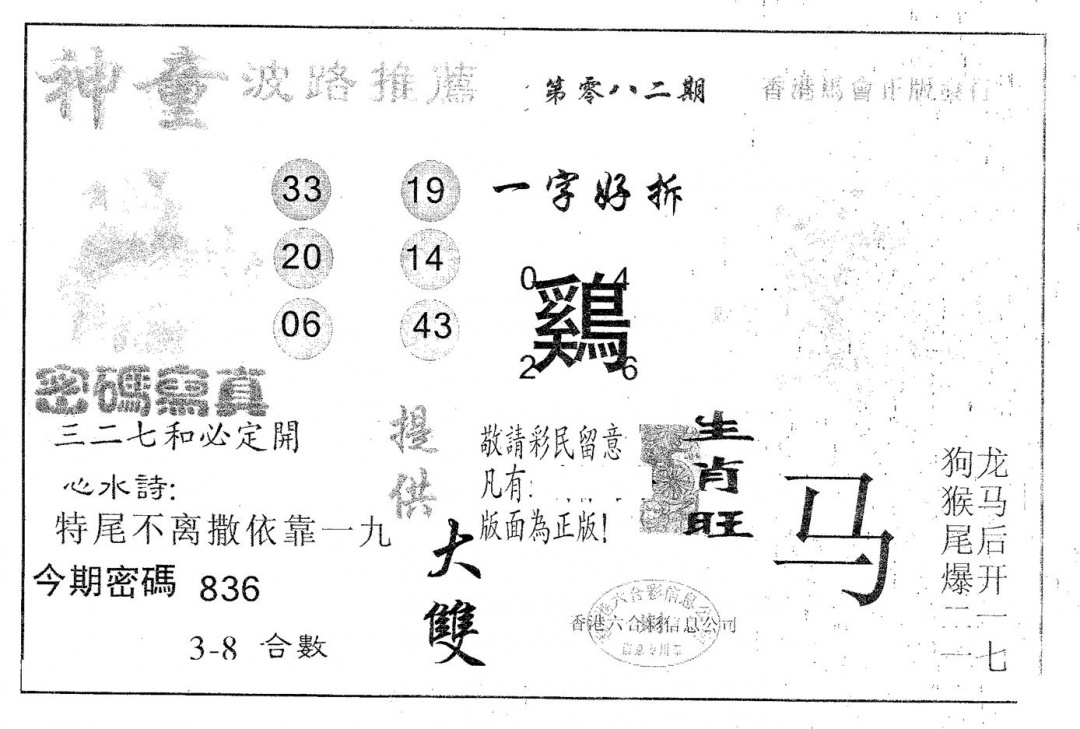 神童波路推薦
第零八二期
香港馬會正版發行
33 19
20 14
06 43
一字好拆
0 4
鷄
2 6
密碼寫真
三二七和必定開
心水詩:
特尾不离撒依靠一九
今期密碼 836
3-8 合數
提供
大雙
敬請彩民留意
凡有:
版面為正版!
生肖旺
马
龙马后开一七
狗猴尾爆二一
香港六合彩信息公司